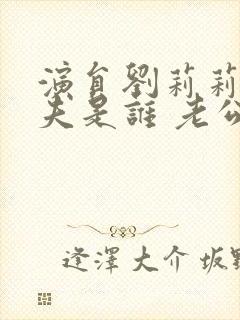 演員劉莉莉
夫是誰 老公
逢澤大介 坂野